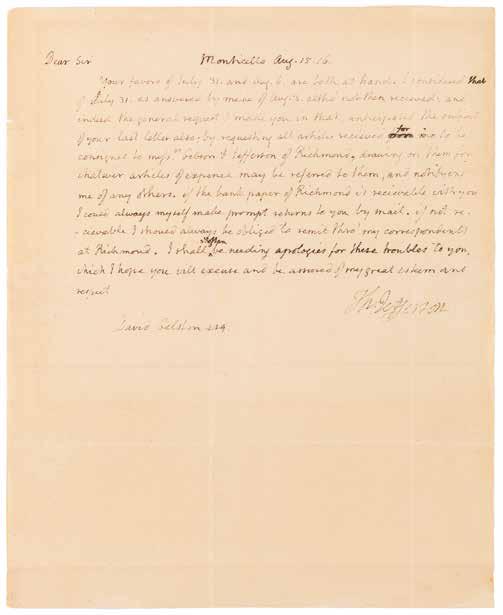 Dear Sir Monticello Aug. 18. 16.
Your favors of July 31. and Aug. 6. are both at hand. I considered that
of July 31. as answered by mine of Aug. 3. altho' not then recieved; and
indeed the general request I made you in that, anticipated the subject
of your last letter also, by requesting all articles recieved for me to be
consigned to mess.rs Gibson & Jefferson of Richmond, drawing on them for
whatever articles of expence may be referred to them, and notifying
me of any others. if the bank paper of Richmond is recievable with you
I could always myself make prompt returns to you by mail. if not re-
-cievable I should always be obliged to remit thro' my correspondents
at Richmond. I shall often be needing apologies for these troubles to you,
which I hope you will excuse and be assured of my great esteem and
respect
Th: Jefferson
David Gelston esq.